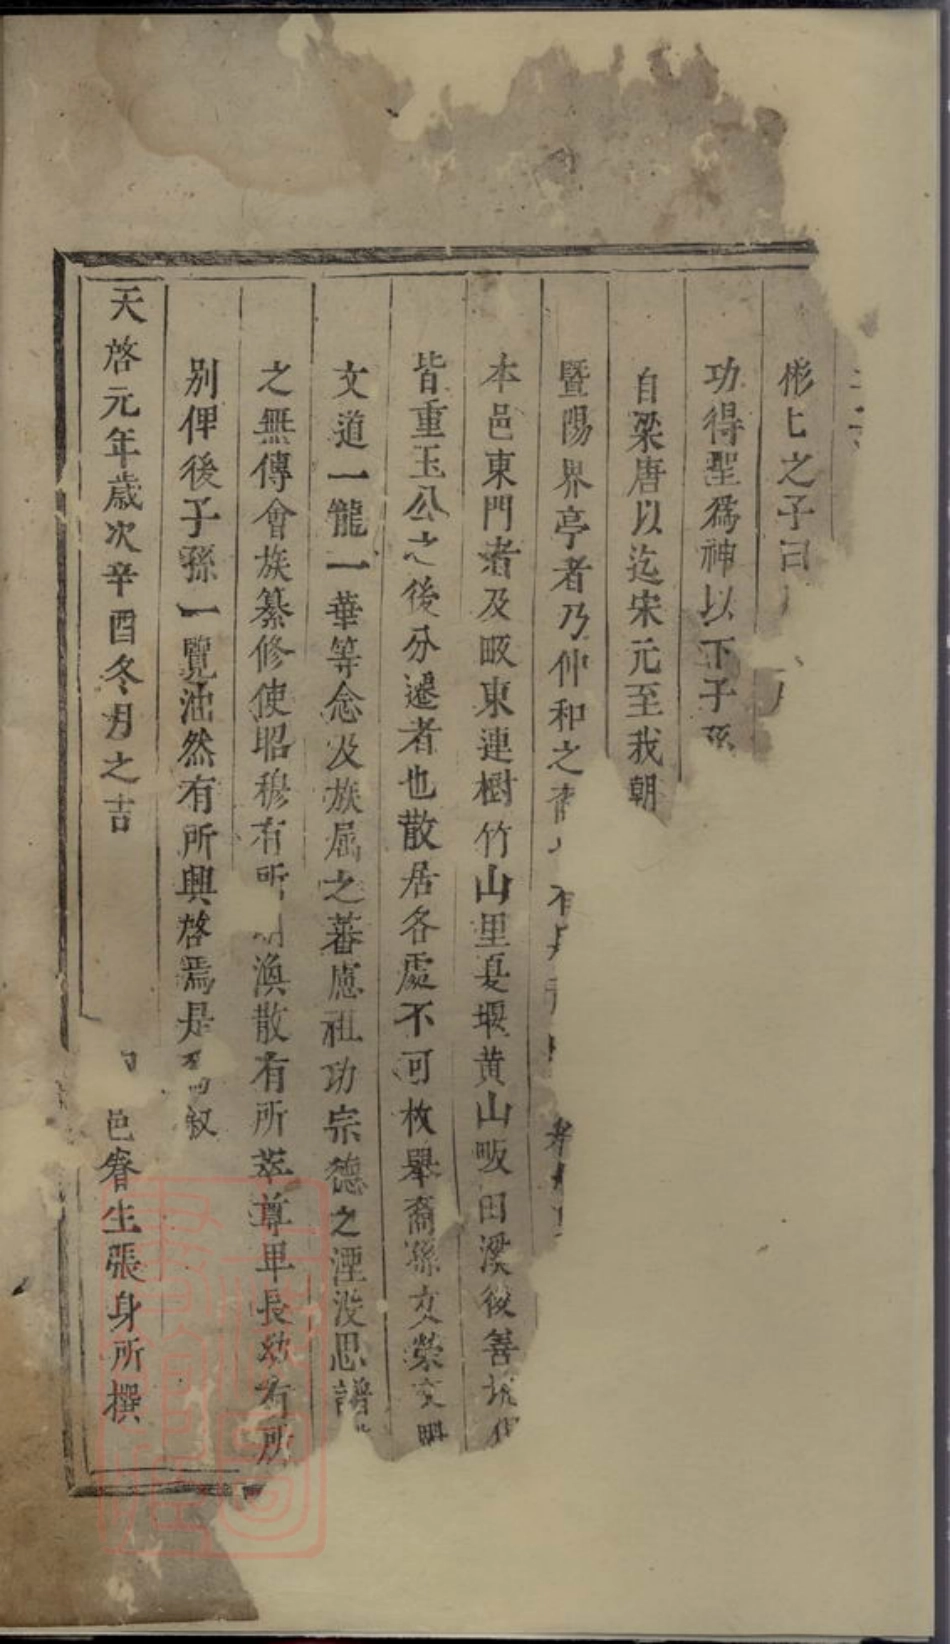 彬七之子曰
功得聖爲神以下子孫
自梁唐以迄宋元至我朝
暨陽界亭者乃仲和之裔
本邑東門者及畈東連樹竹山里夏堰黄山畈田溪後善坑
皆重玉公之後分遷者也散居各處不可枚舉裔孫文榮文明
文道一龍一華等念及族属之蕃慮祖功宗德之湮没思譜
之無傳會族綦修使昭穆有所渙散有所萃尊卑長幼有所
别俾後子孫一覽油然有所興啓焉是爲叙
天啓元年歲次辛酉冬月之吉 邑庠生張身所撰